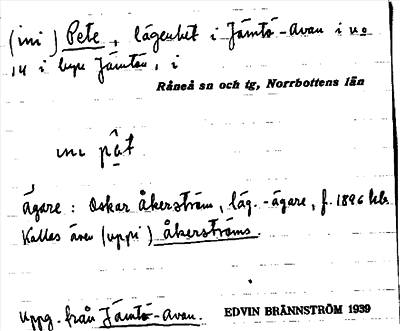 (ini) Pete, lägenhet i Jämtö-Avan i no
14 i byn Jämtön, i
Råneå sn och tg, Norrbottens län
ini pa̭t
ägare: Oskar Åkerström, läg.-ägare, f. 1896 
Kallas även (uppi) Åkerströms.
Uppg. från Jämtö-Avan.
EDVIN BRÄNNSTRÖM 1939